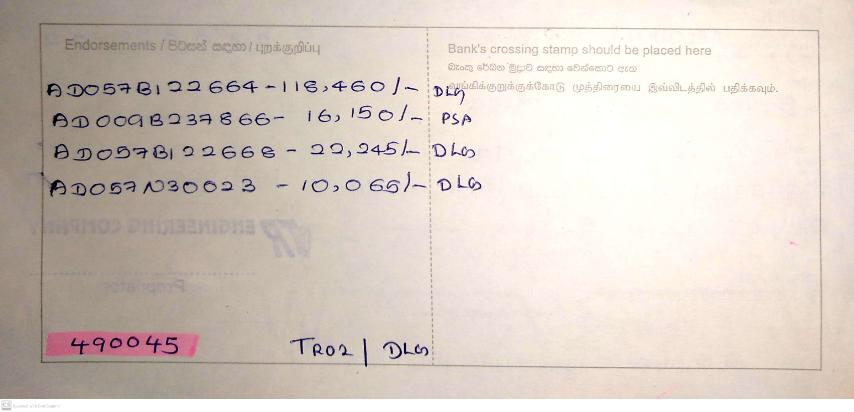 Endorsements / පිටසන් සඳහා / புறக்குறிப்பு
Bank's crossing stamp should be placed here
බැංකු රේඛන මුද්‍රාව සඳහා වෙන්කොට ඇත
வங்கிக்குறுக்குக்கோடு முத்திரையை இவ்விடத்தில் பதிக்கவும்.
AD057B122664 - 118,460/- DLG
AD009B237866 - 16,150/- PSA
AD057B122668 - 22,245/- DLG
AD057N30023 - 10,065/- DLG
ENGINEERING COMPANY
Proprietor
490045
TR02 | DLG